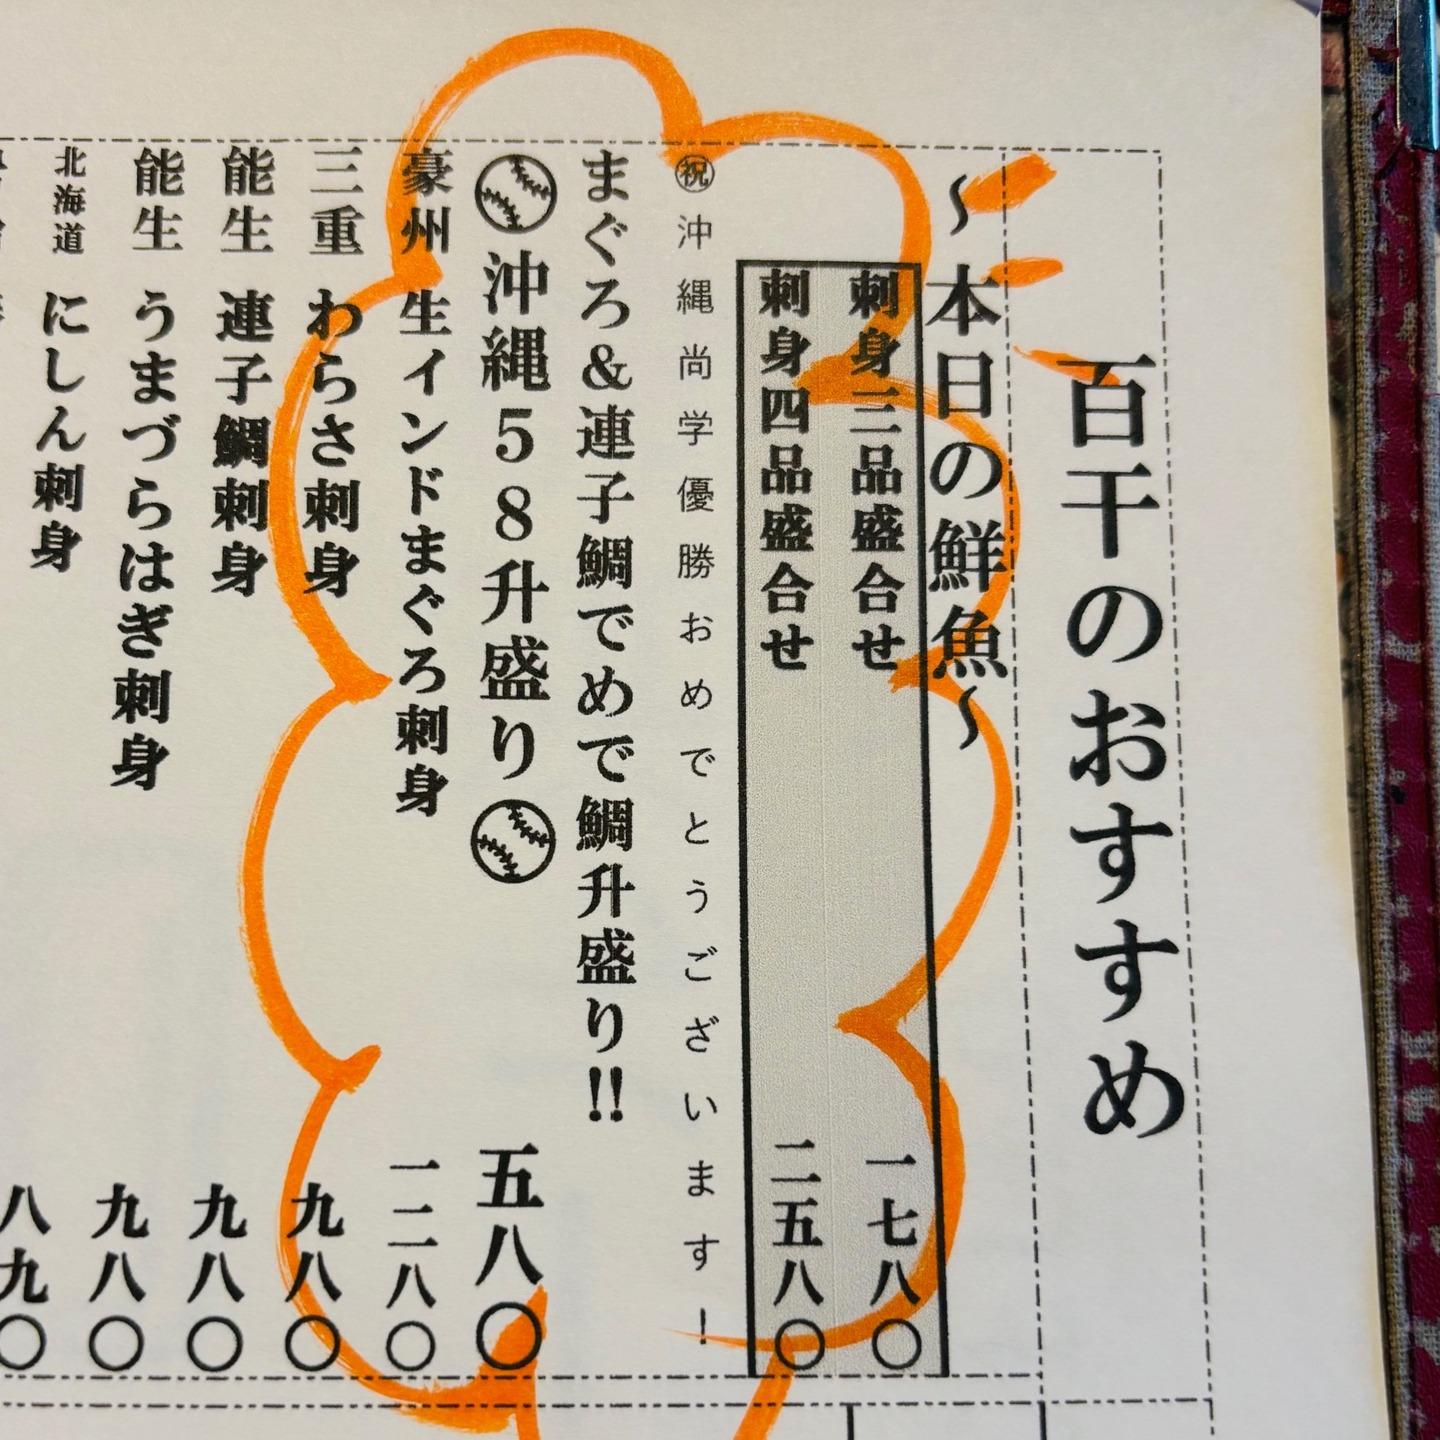 百干のおすすめ
〜本日の鮮魚〜
刺身三品盛合せ 一七八〇
刺身四品盛合せ 二五八〇
㊗沖縄尚学優勝おめでとうございます！
まぐろ&連子鯛でめで鯛升盛り!!
⚾沖縄58升盛り⚾ 五八〇
豪州 生インドまぐろ刺身 一二八〇
三重 わらさ刺身 九八〇
能生 連子鯛刺身 九八〇
能生 うまづらはぎ刺身 九八〇
北海道 にしん刺身 八九〇